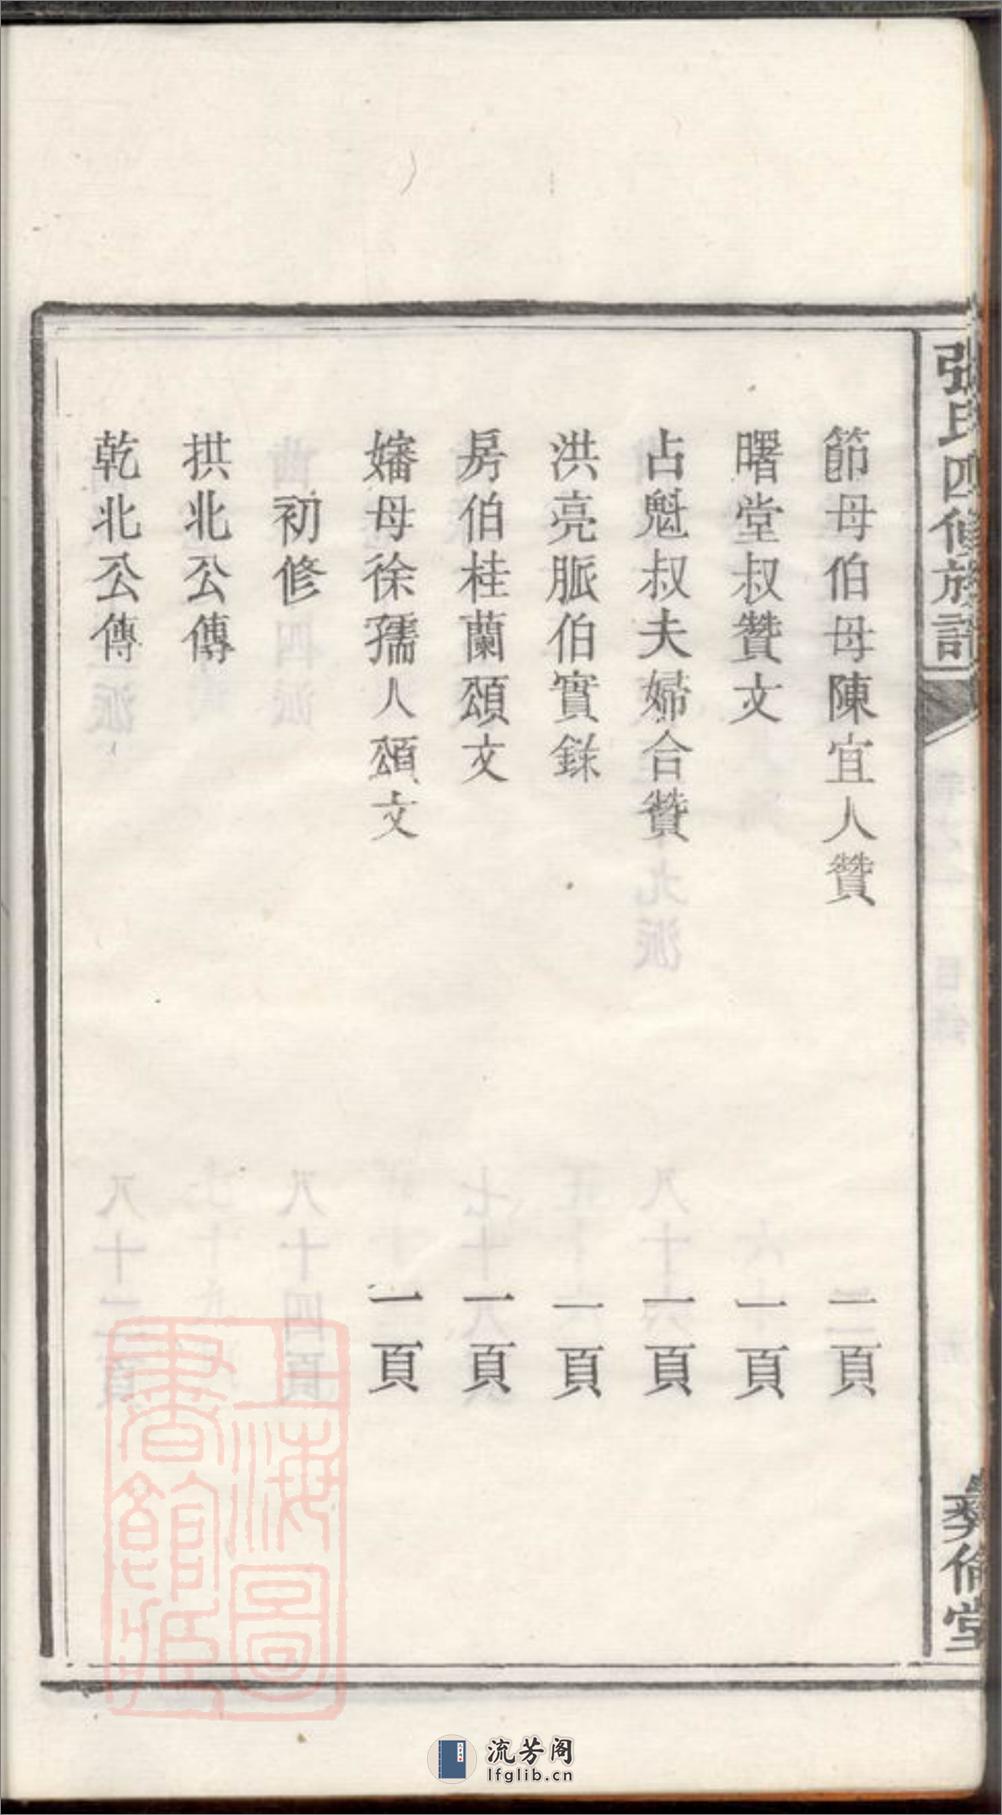 張氏四修族譜
彝倫堂
節母伯母陳宜人贊 二頁
曙堂叔贊文 一頁
占魁叔夫婦合贊 一頁
洪亮脈伯實錄 一頁
房伯桂蘭頌文 一頁
嬸母徐孺人頌文 一頁
初修
拱北公傳
乾北公傳
上海圖書館藏
流芳阁
lfglib.cn